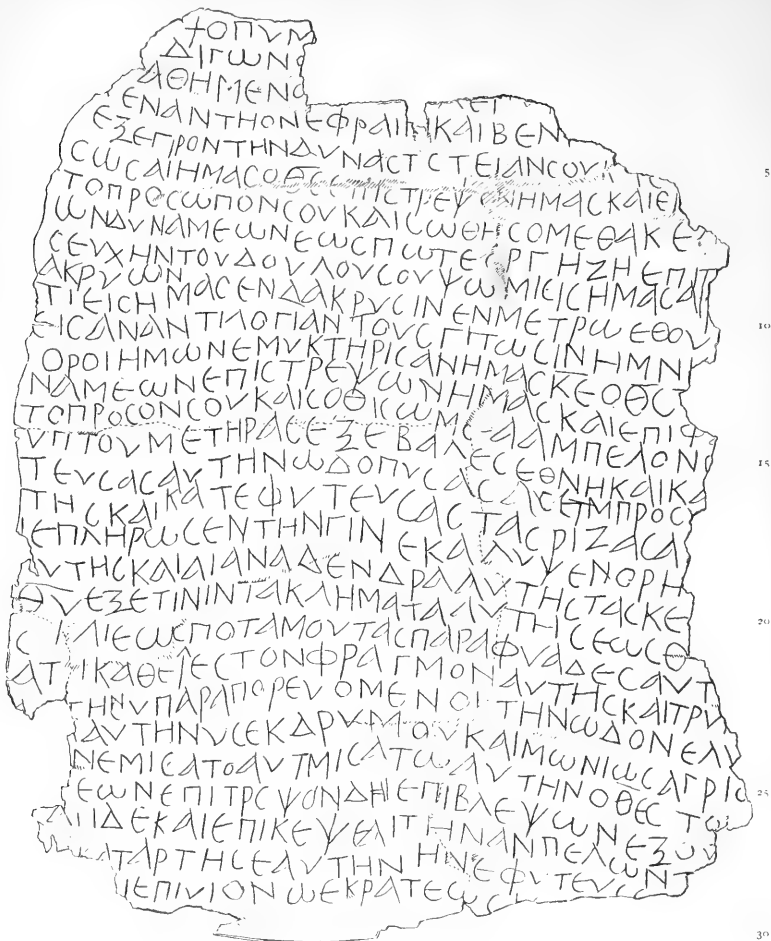 ΤΟΠΥΜ
ΔΙΓωΝΟ
ΑΘΗΜΕΝΟ
ΕΝΑΝΤΗΟΝΕΦΡΑΙΜΚΑΙΒΕΝ
ΕΞΕΓΙΡΟΝΤΗΝΔΥΝΑCΤCΤΕΙΑΝCΟΥΚ
CωCΑΙΗΜΑCΟΘCΕΠΙCΤΡΕΨΟΝΗΜΑCΚΑΙΕΠ
ΤΟΠΡΟCωΠΟΝCΟΥΚΑΙCωΘΗCΟΜΕΘΑΚΕ
5
ωΝΔΥΝΑΜΕωΝΕωCΠωΤΕΟΡΓΗΖΗΕΠΙΤ
CΕΥΧΗΝΤΟΥΔΟΥΛΟΥCΟΥΨωΜΙΕΙCΗΜΑCΑΡ
ΑΚΡΥωΝ
ΤΙΕΙCΗΜΑCΕΝΔΑΚΡΥCΙΝΕΝΜΕΤΡωΕΘΟΥ
10
ΕΙCΑΝΑΝΤΙΛΟΓΙΑΝΤΟΥCΓΙΤωCΙΝΗΜΝΚ
ΟΡΟΙΗΜωΝΕΜΥΚΤΗΡΙCΑΝΗΜΑCΚΕΟΘCΤ
ΝΑΜΕωΝΕΠΙCΤΡΕΨωΝΗΜΑCΚΑΙΕΠΙΦ
ΤΟΠΡΟCΟΝCΟΥΚΑΙCΟΘΙCωΜC-ΑΑΜΠΕΛΟΝ
ΥΠΤΟΥΜΕΤΗΡΑCΕΞΕΒΑΛΕCΕΘΝΗΚΑΙΚΑ
15
ΤΕΥCΑCΑΥΤΗΝωΔΟΠΥCΑCΑCΕΤΜΠΡΟC
ΤΗCΚΑΙΚΑΤΕΦΥΤΕΥCΑCΤΑCΡΙΖΑCΑ
ΙΕΠΛΗΡωCΕΝΤΗΝΓΙΝΕΚΑΛΥΨΕΝΟΡΗ
ΥΤΗCΚΑΙΑΙΑΝΑΔΕΝΔΡΑΑΥΤΗCΤΑCΚΕ
ΘΥΕΞΕΤΙΝΙΝΤΑΚΛΗΜΑΤΑΑΥΤΗCΕωCΘ
20
CΑΙΕωCΠΟΤΑΜΟΥΤΑCΠΑΡΑΦΥΑΔΕCΑΥΤ
ΑΤΙΚΑΘΕΙΕCΤΟΝΦΡΑΓΜΟΝΑΥΤΗCΚΑΙΤΡΥ
ΤΗΝΥΠΑΡΑΠΟΡΕΥΟΜΕΝΟΙΤΗΝωΔΟΝΕΛΥ
ΙΑΥΤΗΝΥCΕΚΔΡΥΜΟΥΚΑΙΜωΝΙωCΑΓΡΙΟ
ΝΕΜΙCΑΤΟΑΥΤΜΙCΑΤωΑΥΤΗΝΟΘΕCΤω
25
ΕωΝΕΠΙΤΡCΨΟΝΔΗΙΕΠΙΒΛΕΨωΝΕΞΟΥ
ΑΙΙΔΕΚΑΙΕΠΙΚΕΨΕΑΙΤΗΝΑΝΠΕΛωΝΤ
ΚΑΤΑΡΤΗCΕΑΥΤΗΝΗΝΕΦΥΤΕΥC
ΙΕΠΙΥΙΟΝωΕΚΡΑΤΕω
30